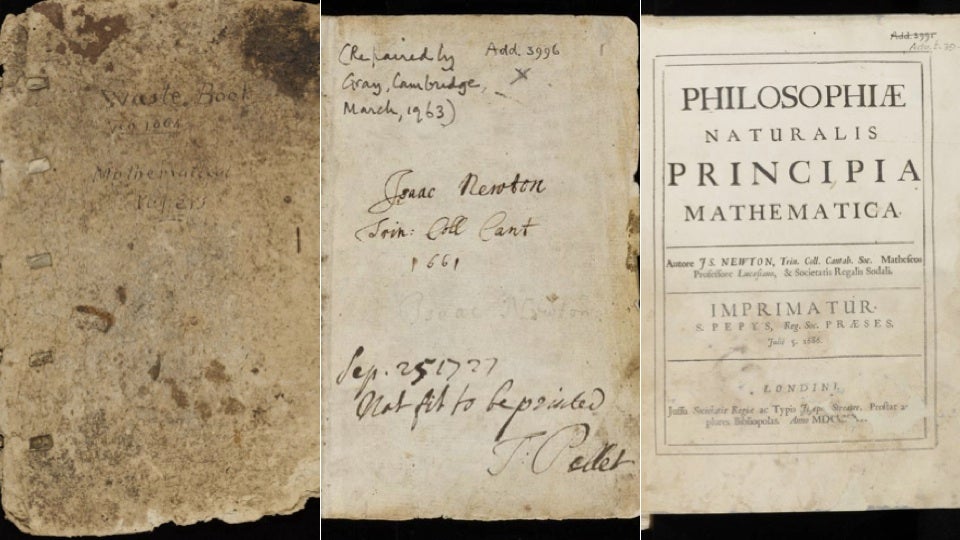 Waste Book
1664
Mathematical
Papers
(Repaired by
Gray, Cambridge,
March, 1963)
Add. 3996
Isaac Newton
Trin: Coll Cant
1661
Isaac Newton
Sep. 25 1727
Not fit to be printed
T. Pellet
Add. 3995
PHILOSOPHIÆ
NATURALIS
PRINCIPIA
MATHEMATICA.
Autore JS. NEWTON, Trin. Coll. Cantab. Soc. Matheseos
Professore Lucasiano, & Societatis Regalis Sodali.
IMPRIMATUR.
S. PEPYS, Reg. Soc. PRÆSES.
Julii 5. 1686.
LONDINI,
Jussu Societatis Regiæ ac Typis Streater. Prostat a-
plures Bibliopolas. Anno